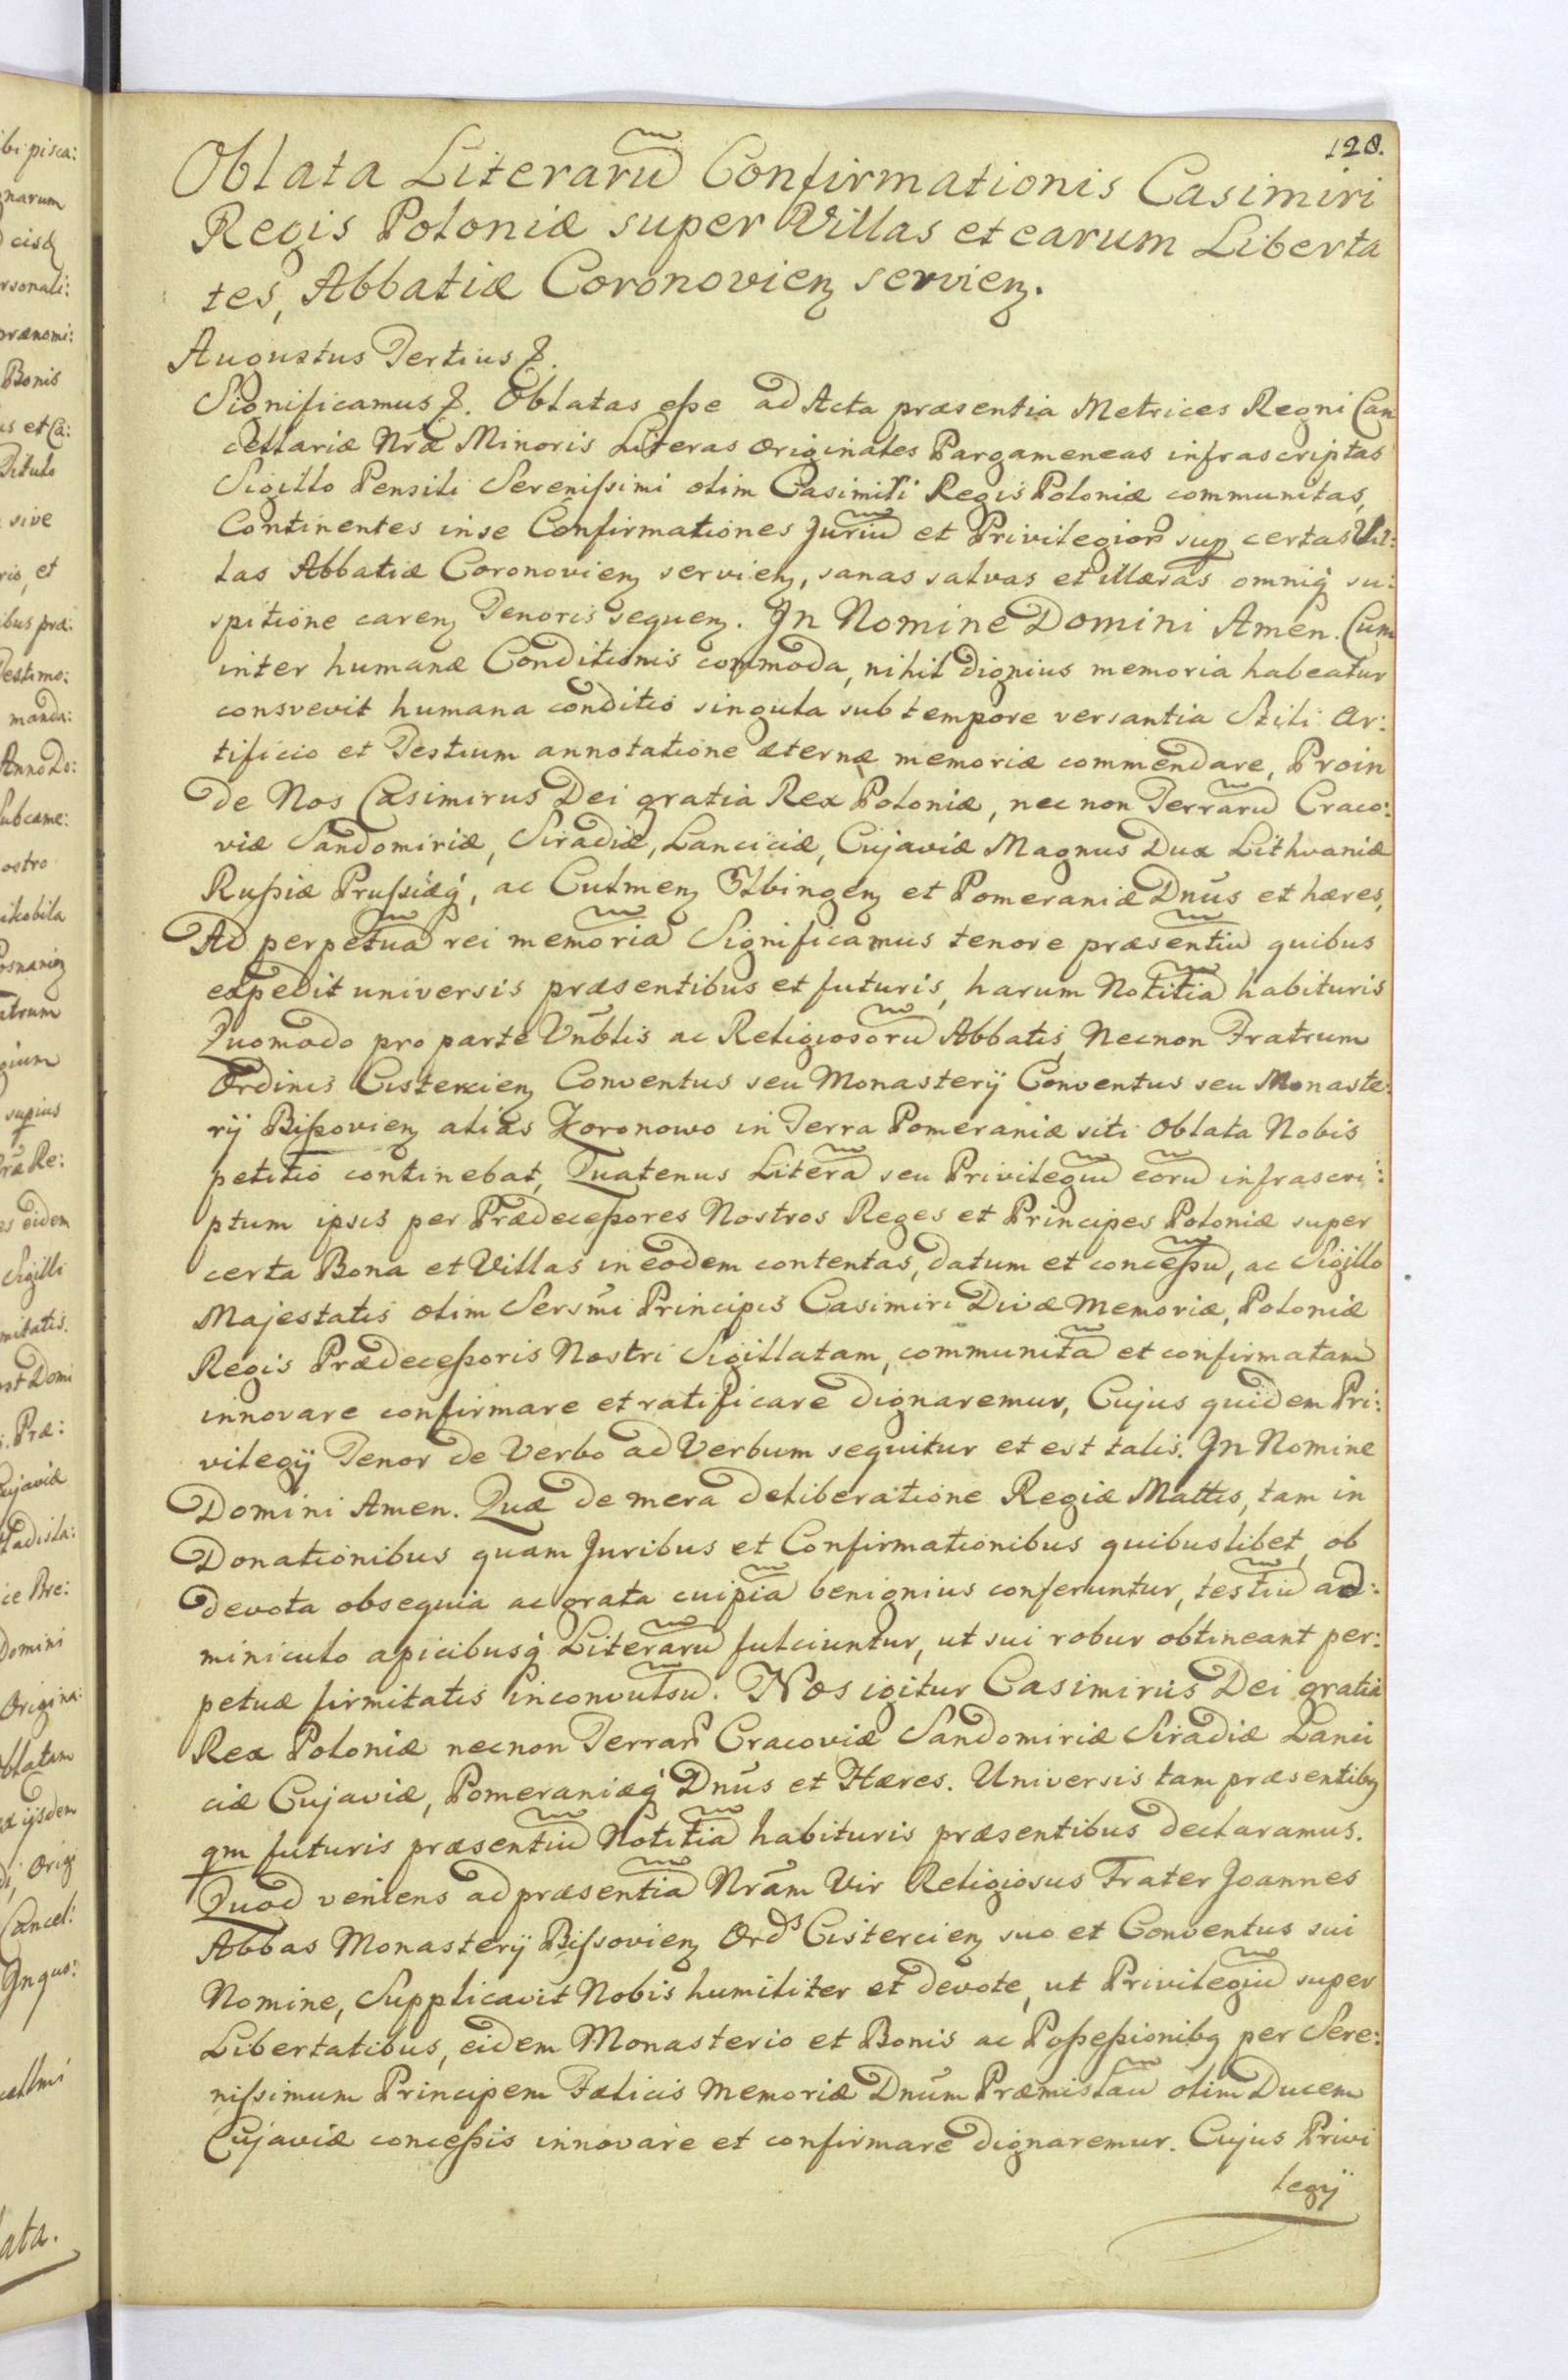 128.
Oblata Literarũ Confirmationis Casimiri
Regis Poloniæ super Villas et earum Liberta
tes, Abbatiæ Coronovien̨ servien̨.
Augustus Tertius &.
Significamus &. Oblatas eße ad Acta præsentia Metrices Regni Can
cellariæ Nræ Minoris Literas Originales Pargameneas infrascriptas
Sigillo Pensili Serenißimi olim Casimiri Regis Poloniæ communitas,
Continentes in se Confirmationes Juriũ et Privilegior sup certas Vil:
las Abbatiæ Coronovien̨ servien̨, sanas salvas et illæsas omniq́ su:
spitione caren̨ Tenoris sequen̨. In Nomine Domini Amen. Cum
inter humanæ Conditionis commoda, nihil dignius memoria habeatur
consvevit humana conditio singula sub tempore versantia Stili Ar:
tificio et Testium annotatione æternæ memoriæ commendare, Proin
de Nos Casimirus Dei gratia Rex Poloniæ, nec non Terrarũ Craco:
viæ Sandomiriæ, Siradiæ, Lanciciæ, Cujaviæ Magnus Dux Lithvaniæ
Rußiæ Prußiæq́, ac Culmen̨ Elbingen̨ et Pomeraniæ Dnus et hæres,
Ad perpetuã rei memoriã Significamus tenore præsentiũ quibus
expedit universis præsentibus et futuris, harum Notitiã habituris
Quomodo pro parte Vnblis ac Religiosorũ Abbatis, Necnon Fratrum
Ordinis Cistercien̨ Conventus seu Monasterÿ Conventus seu Monaste:
rÿ Bißovien̨ alias Koronowo in Terra Pomeraniæ siti Oblata Nobis
petitio continebat, Quatenus Literã seu Privilegiũ eorũ infrascri:
ptum ipsis per Prædeceßores Nostros Reges et Principes Poloniæ super
certa Bona et Villas in eodem contentas, datum et conceßũ, ac Sigillo
Majestatis olim Sersmi Principis Casimiri Divæ Memoriæ, Poloniæ
Regis Prædeceßoris Nostri Sigillatam, communitã et confirmatam
innovare confirmare et ratificare dignaremur, Cujus quidem Pri:
vilegÿ Tenor de Verbo ad Verbum sequitur et est talis. In Nomine
Domini Amen. Quæ de mera deliberatione Regiæ Mattis, tam in
Donationibus quam Juribus et Confirmationibus quibuslibet, ob
devota obsequia ac grata cuipiã benignius conferuntur, testiũ ad:
miniculo apicibusq́ Literarũ fulciuntur, ut sui robur obtineant per:
petuæ firmitatis inconvulsũ. Nos igitur Casimirus Dei gratia
Rex Poloniæ necnon Terrar Cracoviæ Sandomiriæ Siradiæ Lanci
ciæ Cujaviæ, Pomeraniæq́ Dnus et Hæres. Universis tam præsentibq
qm futuris præsentiũ Notitiã habituris præsentibus declaramus.
Quod veniens ad præsentiã Nram Vir Religiosus Frater Joannes
Abbas Monasterÿ Bißovien̨ Ords Cistercien̨ suo et Conventus sui
Nomine, Supplicavit Nobis humiliter et devote, ut Privilegiũ super
Libertatibus, eidem Monasterio et Bonis ac Poßeßionibq per Sere:
nißimum Principem Fælicis Memoriæ Dnum Præmislaũ olim Ducem
Cujaviæ conceßis innovare et confirmare dignaremur. Cujus Privi
legÿ